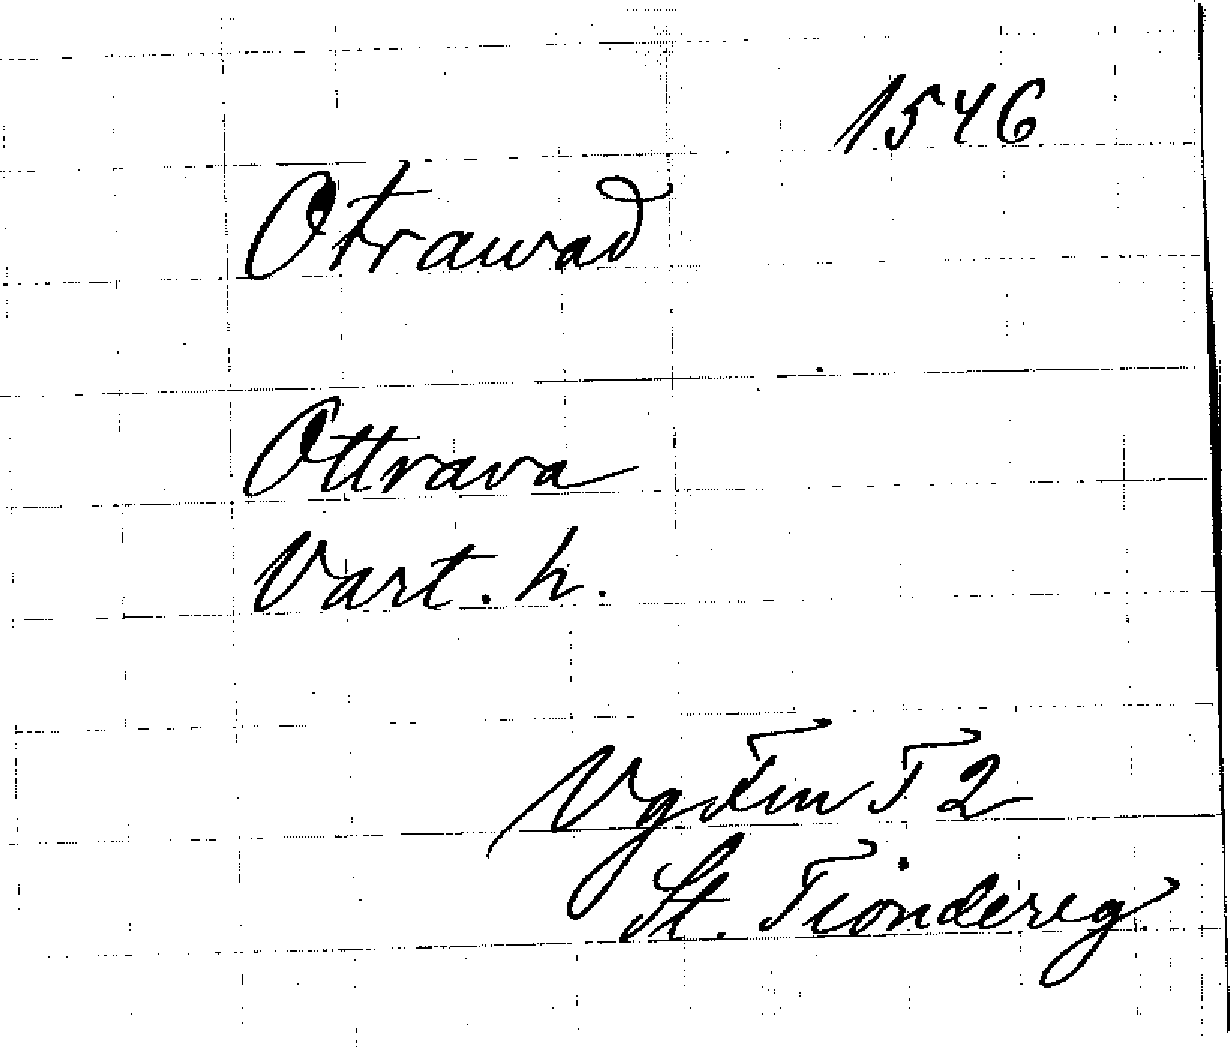 1546
Otrawad
Ottrava
Vart. h.
Vg Tm T 2
St. Tiondereg